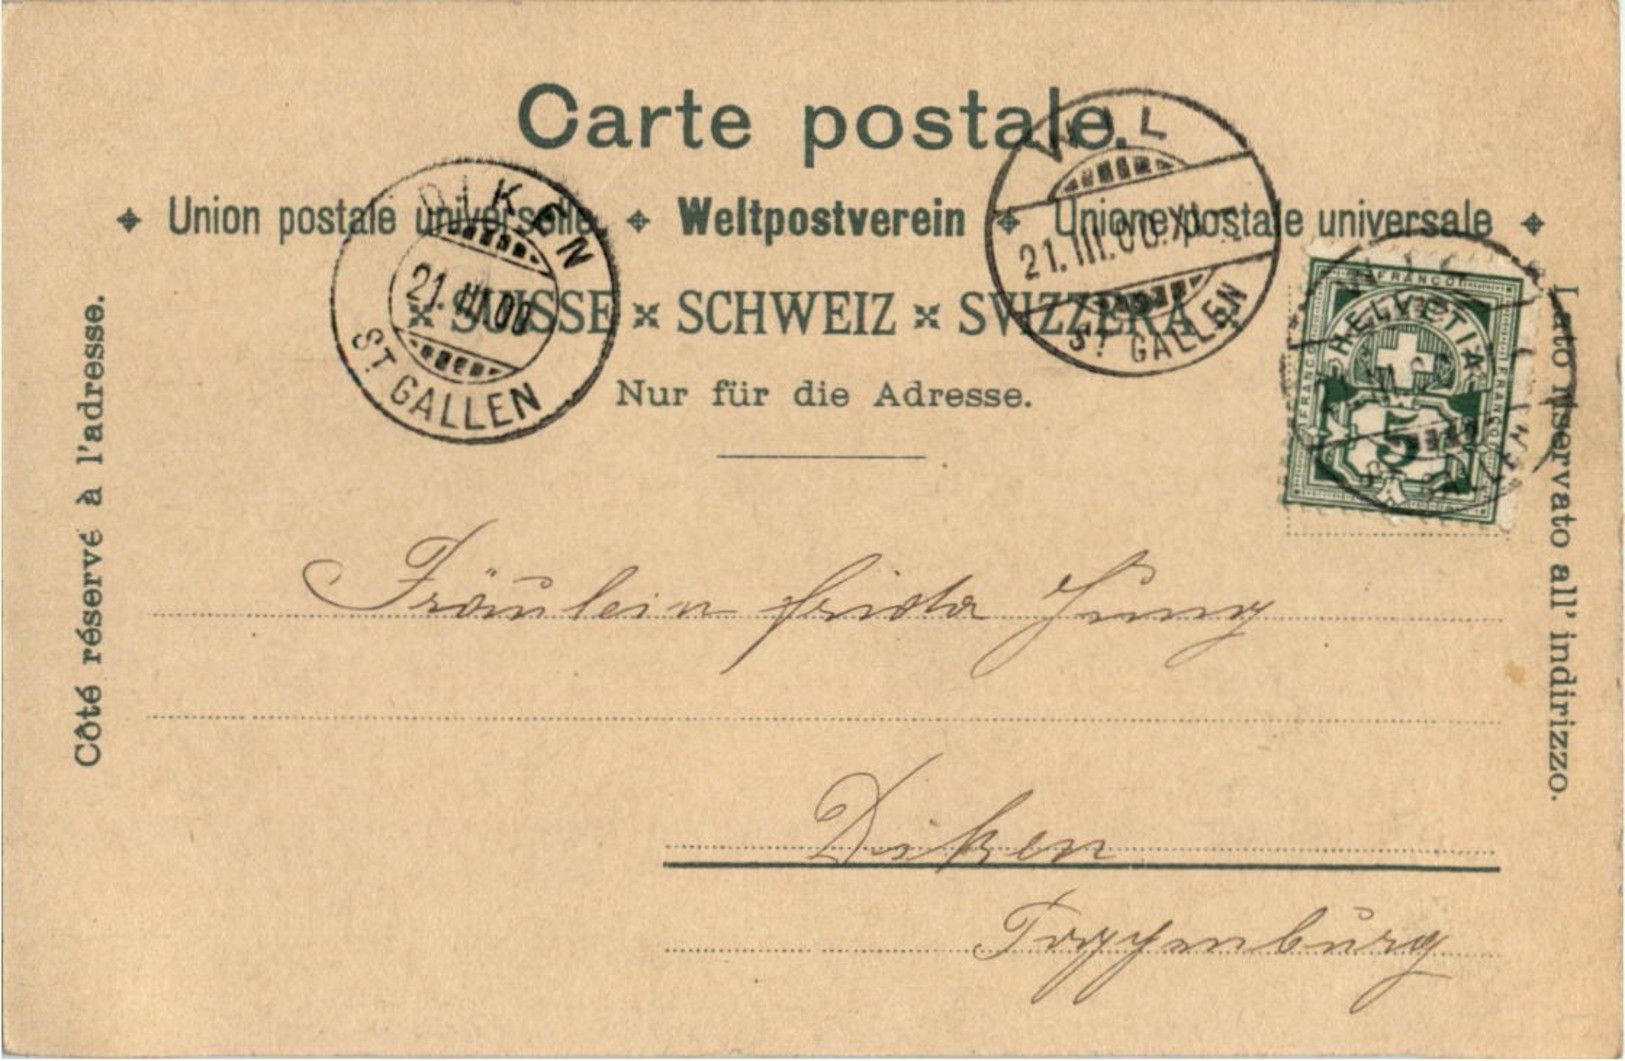 Carte postale.
Union postale universelle Weltpostverein Unione postale universale
SUISSE SCHWEIZ SVIZZERA
Nur für die Adresse.
Côté réservé à l'adresse.
Lato riservato all' indirizzo.
DIKEN
21.III.00
ST GALLEN
WIL
21.III.00.XI
ST GALLEN
FRANCO
FRANCO
FRANCO
HELVETIA
5
Fräulein Frida Jung
Diken
Toggenburg